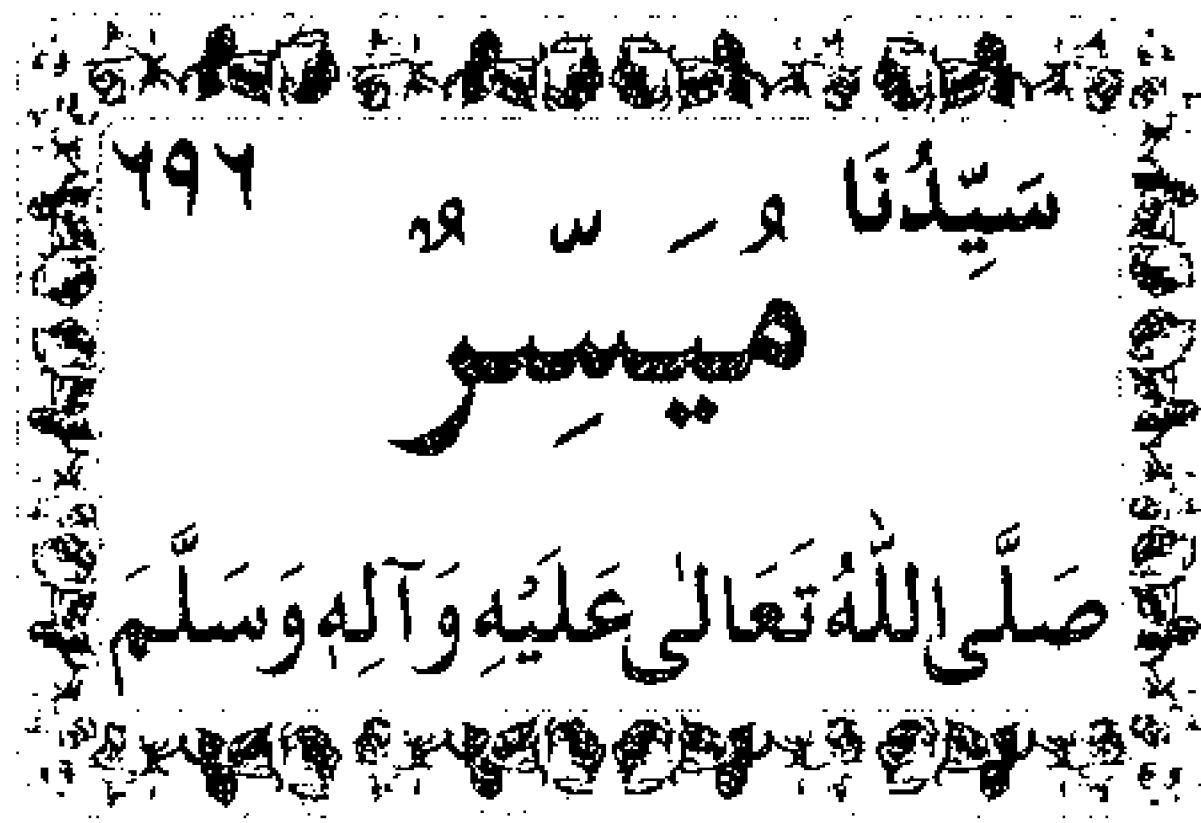 سَيِّدُنَا ٦٩٦
مُيَسِّرٌ
صَلَّى اللّٰهُ تَعَالٰى عَلَيْهِ وَآلِهٖ وَسَلَّمَ